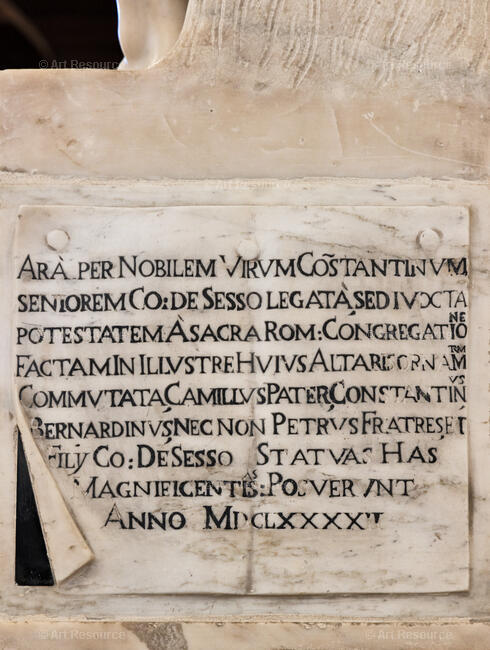 © Art Resource © Art Resource © Art Resource
ARÀ PER NOBILEM VIRVM CÕSTANTINVM
SENIOREM CO: DE SESSO LEGATÀ, SED IVXTA
POTESTATEM À SACRA ROM: CONGREGATIONE
FACTAM IN ILLVSTRE HVIVS ALTARIS ORNAM
COMMVTATA, CAMILLVS PATER, CONSTANTINVS
BERNARDINVS, NEC NON PETRVS FRATRES, ET
FILIJ CO: DE SESSO STATVAS HAS
MAGNIFICENTIS: POSVERVNT
ANNO MDCLXXXX
© Art Resource © Art Resource © Art Resource